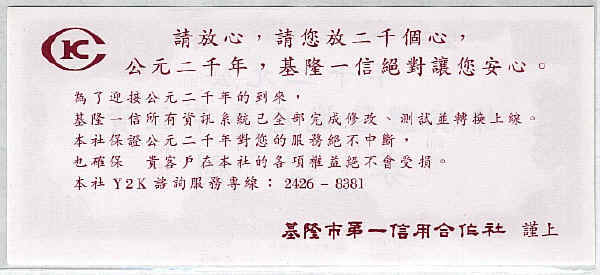 KC
請放心，請您放二千個心，
公元二千年，基隆一信絕對讓您安心。
為了迎接公元二千年的到來，
基隆一信所有資訊系統已全部完成修改、測試並轉換上線。
本社保證公元二千年對您的服務絕不中斷，
也確保　貴客戶在本社的各項權益絕不會受損。
本社Y2K諮詢服務專線：2426－8381
基隆市第一信用合作社　謹上